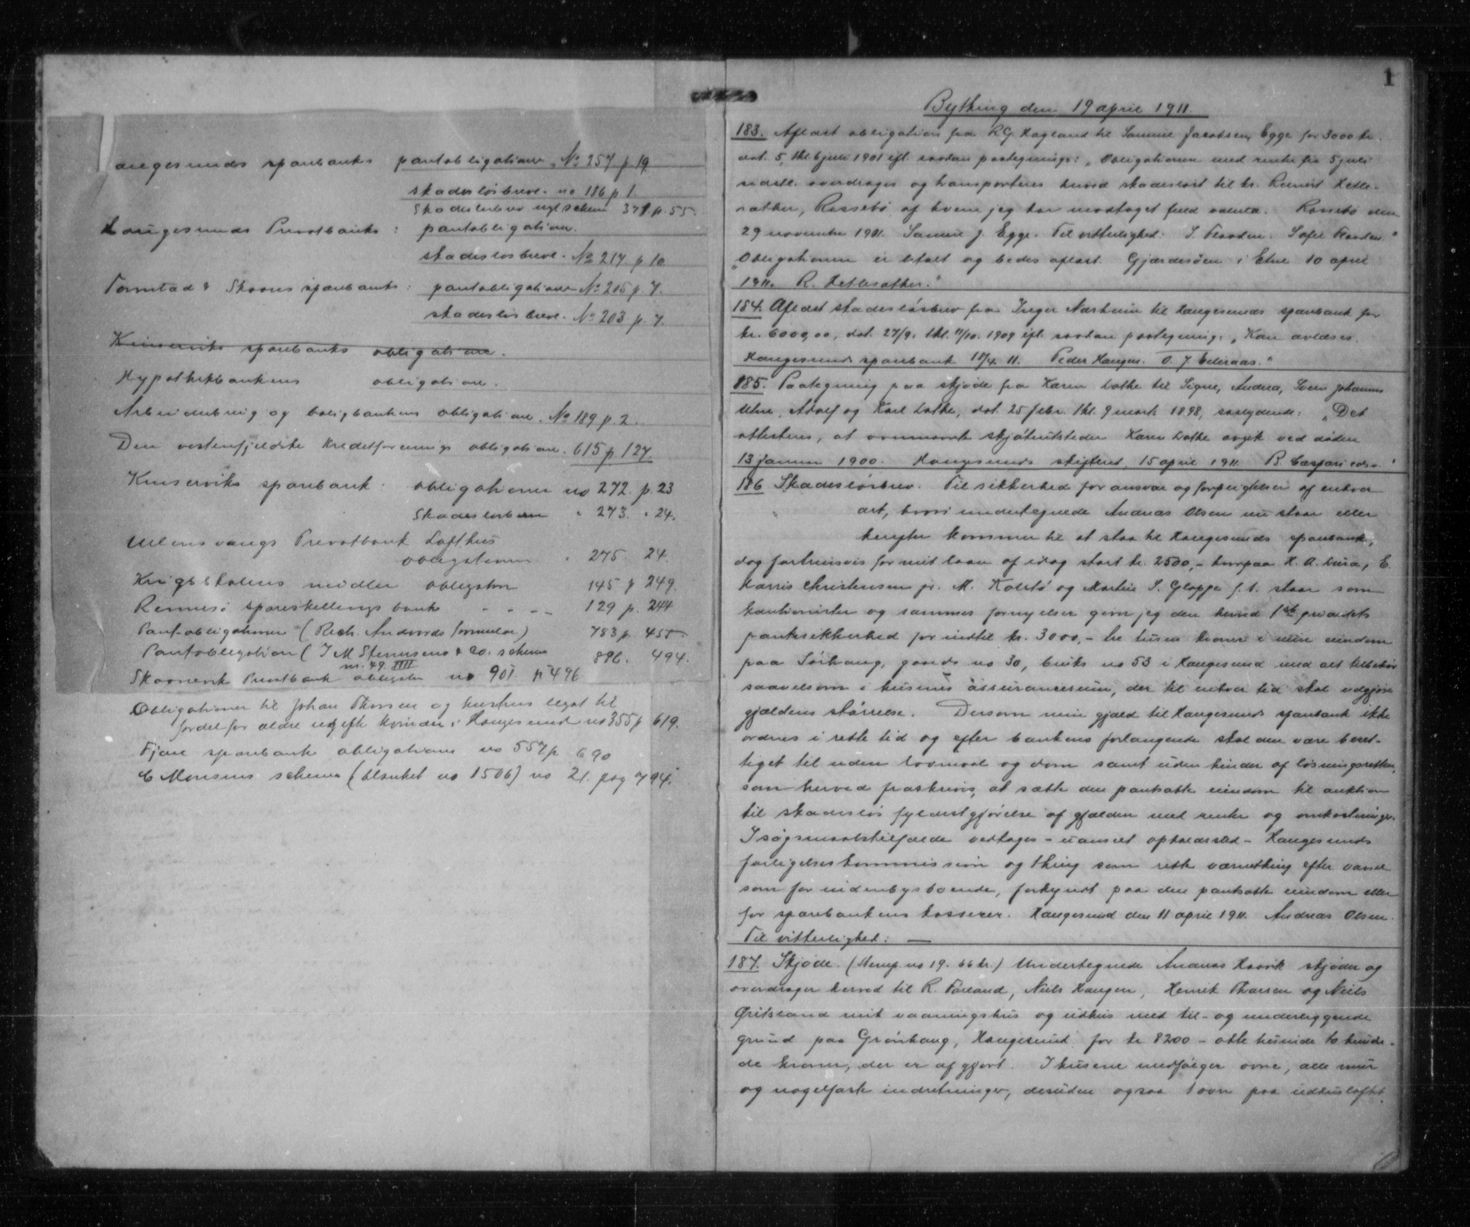 Haugesunds sparebanks pantobligationer No 257 p. 19
skadesløsbreve. no 186 p. 1.
Skadesløsbrev nyt schema 371 p. 55
Haugesunds Privatbanks: pantobligationer.
skadesløsbreve. No 217 p. 10
Torvestad & Skaares sparebanks: pantobligationer No 205 p. 7.
skadesløsbreve. No 203 p. 7.
Kinserviks sparebanks obligationer.
Hypothekbankens obligationer.
Arbeiderbrug og boligbankens obligationer. No 189 p. 2.
Den vestenfjeldske kreditforenings obligationer. 615 p 127.
Kinserviks sparebank. obligationer no 272 p. 23
Skadesløsbreve " 273. " 24.
Ullensvangs Privatbank Lofthus
obligationer " 275 24.
obligation 145 p 249.
Rennesø spareskillingsbank " - - - 129 p. 244
Pantobligationer (Rich. Andvords formular) 783 p. 455
Pantobligation (J M Stenersens & Co. schema 896. 494.
nr. 49 XIII
Skaanevik Privatbank obligation no 901 p 496
Obligationer til Johan Thorsen og hustrus legat til
fordel for ældre ugifte kvinder i Haugesund no 355 p 619.
Fjære sparebank obligations no 557 p 690
schema (blanket no 1506) no 21. pag 794.
1
Bything den 19 april 1911.
183. Aflæst obligation fra R.G. Hagland til Samuel Jacobsen, Egge for 3000 kr.
dat. 5, thl. 6 juli 1901 eft. saadan paategning: "Obligationen med rente fra 5 juli
sidstl. overdrages og transporteres herved skadesløst til hr. Reinert Hetle-
sæther, Rossebø af hvem jeg har modtaget fuld valuta. Rossebø den
29 november 1901. Samuel J. Egge. Til vitterlighed: J. Sofie
"Obligationen er betalt og bedes aflæst. Gjerdesøen i Etne 10 april
1911. R. Hetlesæther."
184. Aflæst skadesløsbrev fra Inger Nærheim til Haugesunds sparebank for
kr. 6000,00, dat. 27/9. thl. 1909 eft. saadan paategning: "Kan avlæses.
Haugesunds sparebank 18/4. 11. Peder Haugen. O. J Eideraas."
185. Paategning paa skjøde fra Karen Lothe til Signe, Andrea, Sven Johannes
Adolf og Karl Lothe, dat. 25 febr. thl. 9 marts 1898, saalydende: "Det
attesteres, at ovennævnte skjøteutstederske Karen Lothe avgik ved døden
13 januar 1900. Haugesunds skifteret, 15 april 1911. B. Caspari
186 Skadesløsbrev. Til sikkerhed for ansvar og forpligtelser af enhver
art, hvori undertegnede Andreas Olsen nu staar eller
herefter kommer til at staa til Haugesunds sparebank,
dog fortrinsvis for mit laan af idag stort kr. 2500,- hvorpaa H. A. E.
Harris Christensen jr. M. Kolstø og Martin S. Gloppe f. t. staar som
kautionister og sammes fornyelser giver jeg den herved 1ste prioritets
pantsikkerhed for indtil kr. 3000,- tre tusen kroner i min eiendom
paa Sørhaug, gaards no 30, bruks no 53 i Haugesund med alt tilbehør
saavelsom i husenes assurancesum, der til enhver tid skal udgjøre
gjældens størrelse. Dersom min gjæld til Haugesunds sparebank ikke
ordnes i rette tid og efter bankens forlangende skal den være beret-
tiget til uden lovmaal og dom samt uden hinder af løsningsretten,
som herved fraskrives, at sætte den pantsatte eiendom til auktion
til skadesløs fyldestgjørelse af gjælden med renter og omkostninger.
I søgsmaalstilfælde vedtages - uanseet opholdssted - Haugesunds
forligelseskommission og thing som rette værnething efter varsel
som for indenbysboende, forkyndt paa den pantsatte eiendom eller
for sparebankens kasserer. Haugesund den 11 april 1911. Andreas Olsen.
Til vitterlighed: —
187. Skjøde. (Stemp. no 19. 66 kr.) Undertegnede Andreas Haavik skjøder og
overdrager herved til R. Førland, Niels Haugen, Henrik Thorsen og Niels
Østrland mit vaaningshus og udhus med til- og underliggende
grund paa Grønhaug, Haugesund for kr 8200 - otte tusinde to hundre-
de kroner, der er afgjort. I husene medfølger ovne, alle mur
og nagelfaste indretninger, desuden ogsaa 1 ovn paa udhusloftet.